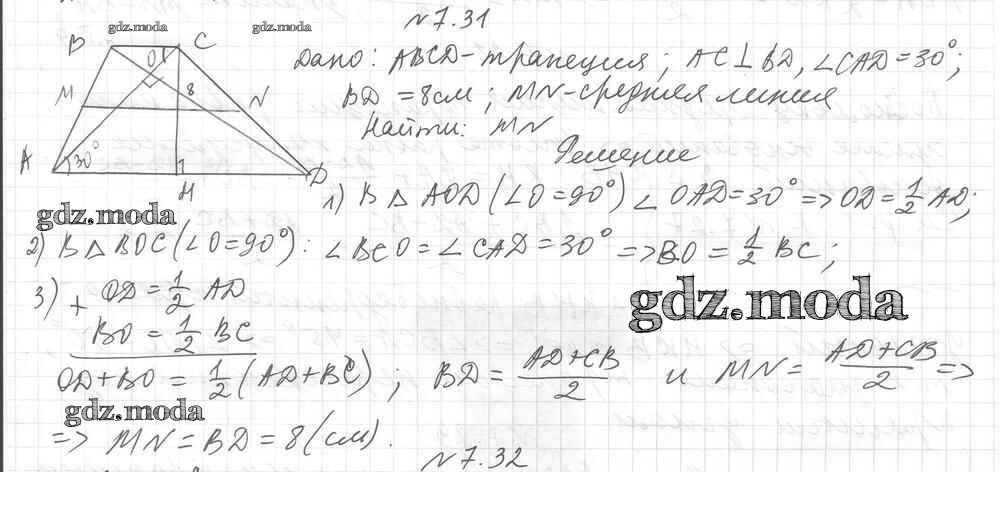 gdz.moda gdz.moda
N 7.31
B O C
M 8 N
A 30° H D
Дано: ABCD-трапеция; AC⊥BD, ∠CAD=30°;
BD=8см; MN-средняя линия
Найти: MN
Решение
1) В △ AOD (∠O=90°) ∠OAD=30° => OD=1/2 AD;
gdz.moda
2) В △ BOC (∠O=90°): ∠BCO=∠CAD=30° => BO=1/2 BC;
3) + OD=1/2 AD
BO=1/2 BC
gdz.moda
OD+BO=1/2(AD+BC); BD=AD+CB/2 и MN=AD+CB/2 =>
gdz.moda
=> MN=BD=8(см).
N 7.32